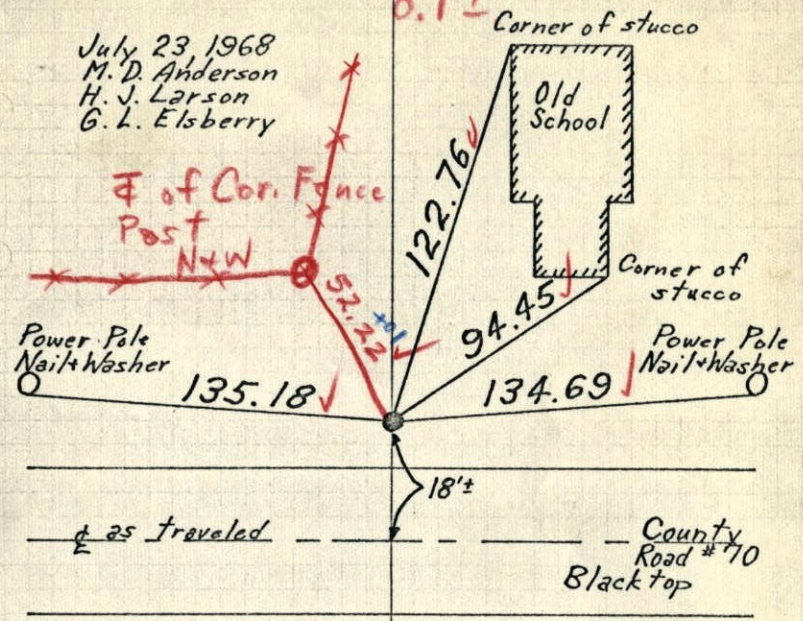 0.1±
Corner of stucco
July 23, 1968
M. D. Anderson
H. J. Larson
G. L. Elsberry
Old
School
122.76
℄ of Cor. Fence
Post
N+W
52.22
+01
94.45
Corner of
stucco
Power Pole
Nail+Washer
135.18
134.69
Power Pole
Nail+Washer
18'±
℄ as traveled
County
Road #70
Blacktop